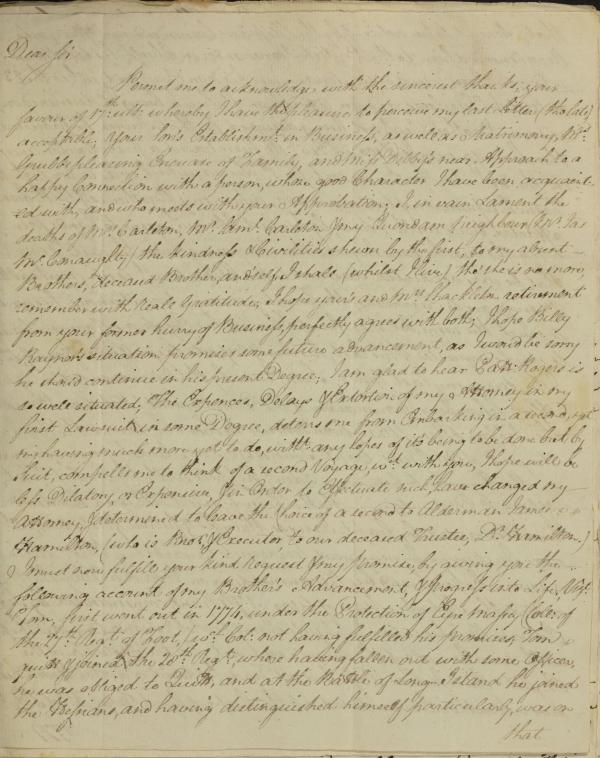 Dear Sir
Permit me to acknowledge, with the sincerest thanks, your
favour of 17th ult: whereby I have the pleasure to perceive my last Letter (tho' late)
acceptable; Your Son's Establishmt. in Business, as well as Matrimony, Mrs.
Grubb's pleasing Encrease of Family, and Miss Debby's near Approach to a
happy Connection with a person, whose good Character I have been acquaint-
ed with, and who meets with your Approbation; I, in vain Lament the
deaths of Mrs. Carleton, Mr. Saml. Carleton & my Quondam Neighbour
McConaughty; the kindness & Civilities shewn by the first, to my absent
Brothers, deceased Brother, and self, I shall (whilst I live) tho' she is no more,
remember with Reale Gratitude; I hope your and Mrs. Shackleton retirement
from your former hurry of Business, perfectly agrees with both; I hope Billy
Rayner's situation promises some future advancement, as I wou'd be sorry
he shou'd continue in his present Degree; I am glad to hear Rogers is
so well situated; The Expences, Delays & Extortion of my Attorney in my
first Lawsuit, in some Degree, deters me from Embarking in a second, yet
my having much more yet to do, witht. any hopes of its being to be done but by
Suit, compells me to think of a second Voyage, wch. with you, I hope will be
less Dilatory, or Expensive, & in Order to Effectuate such, have changed my
Attorney, & determined to leave the Choice of a second to Alderman James
Hamilton, (who is Bror. & Executor to our deceased Trustee, Dr. Hamilton.)
I must now fulfile your kind Request & my promise, by giving you the
following account of my Brother's Advancement, & progress into Life, Vizt.
Tom, first went out in 1774, under the Protection of Eyre Massey (Coll: of
the 27th. Regt. of Foot, wch. Col: not having fulfilled his promises, Tom
quits & joined the 20th Regt., where having fallen out with some Officer,
he was obliged to Quitt, and at the Battle of Long Island he joined
the Hessians, and having distinguished himself particularly, was on
that